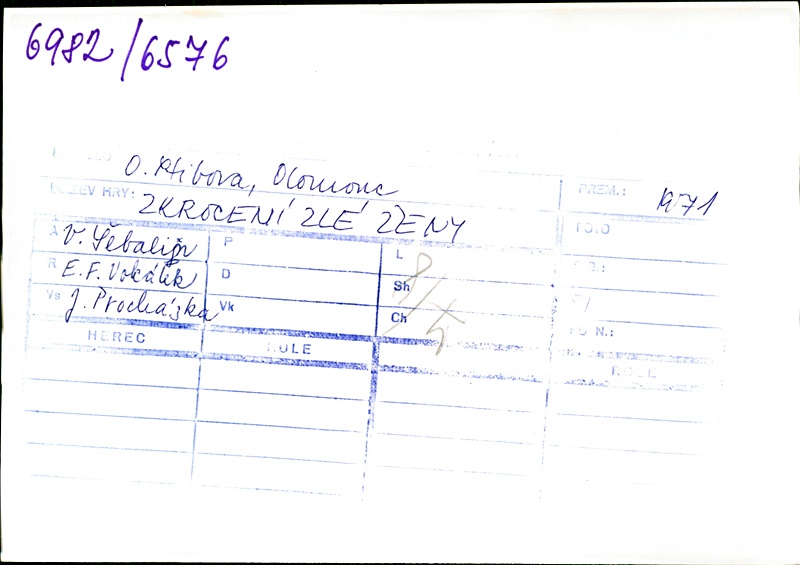 6982/6576
O. Stibora, Olomouc
NÁZEV HRY: ZKROCENÍ ZLÉ ŽENY
PREM.: 1971
A V. Šebalijn P L FO.O
R E.F. Vokálik D Sh
Vs J. Procházka Vk Ch FO N.:
HEREC ROLE ROLE